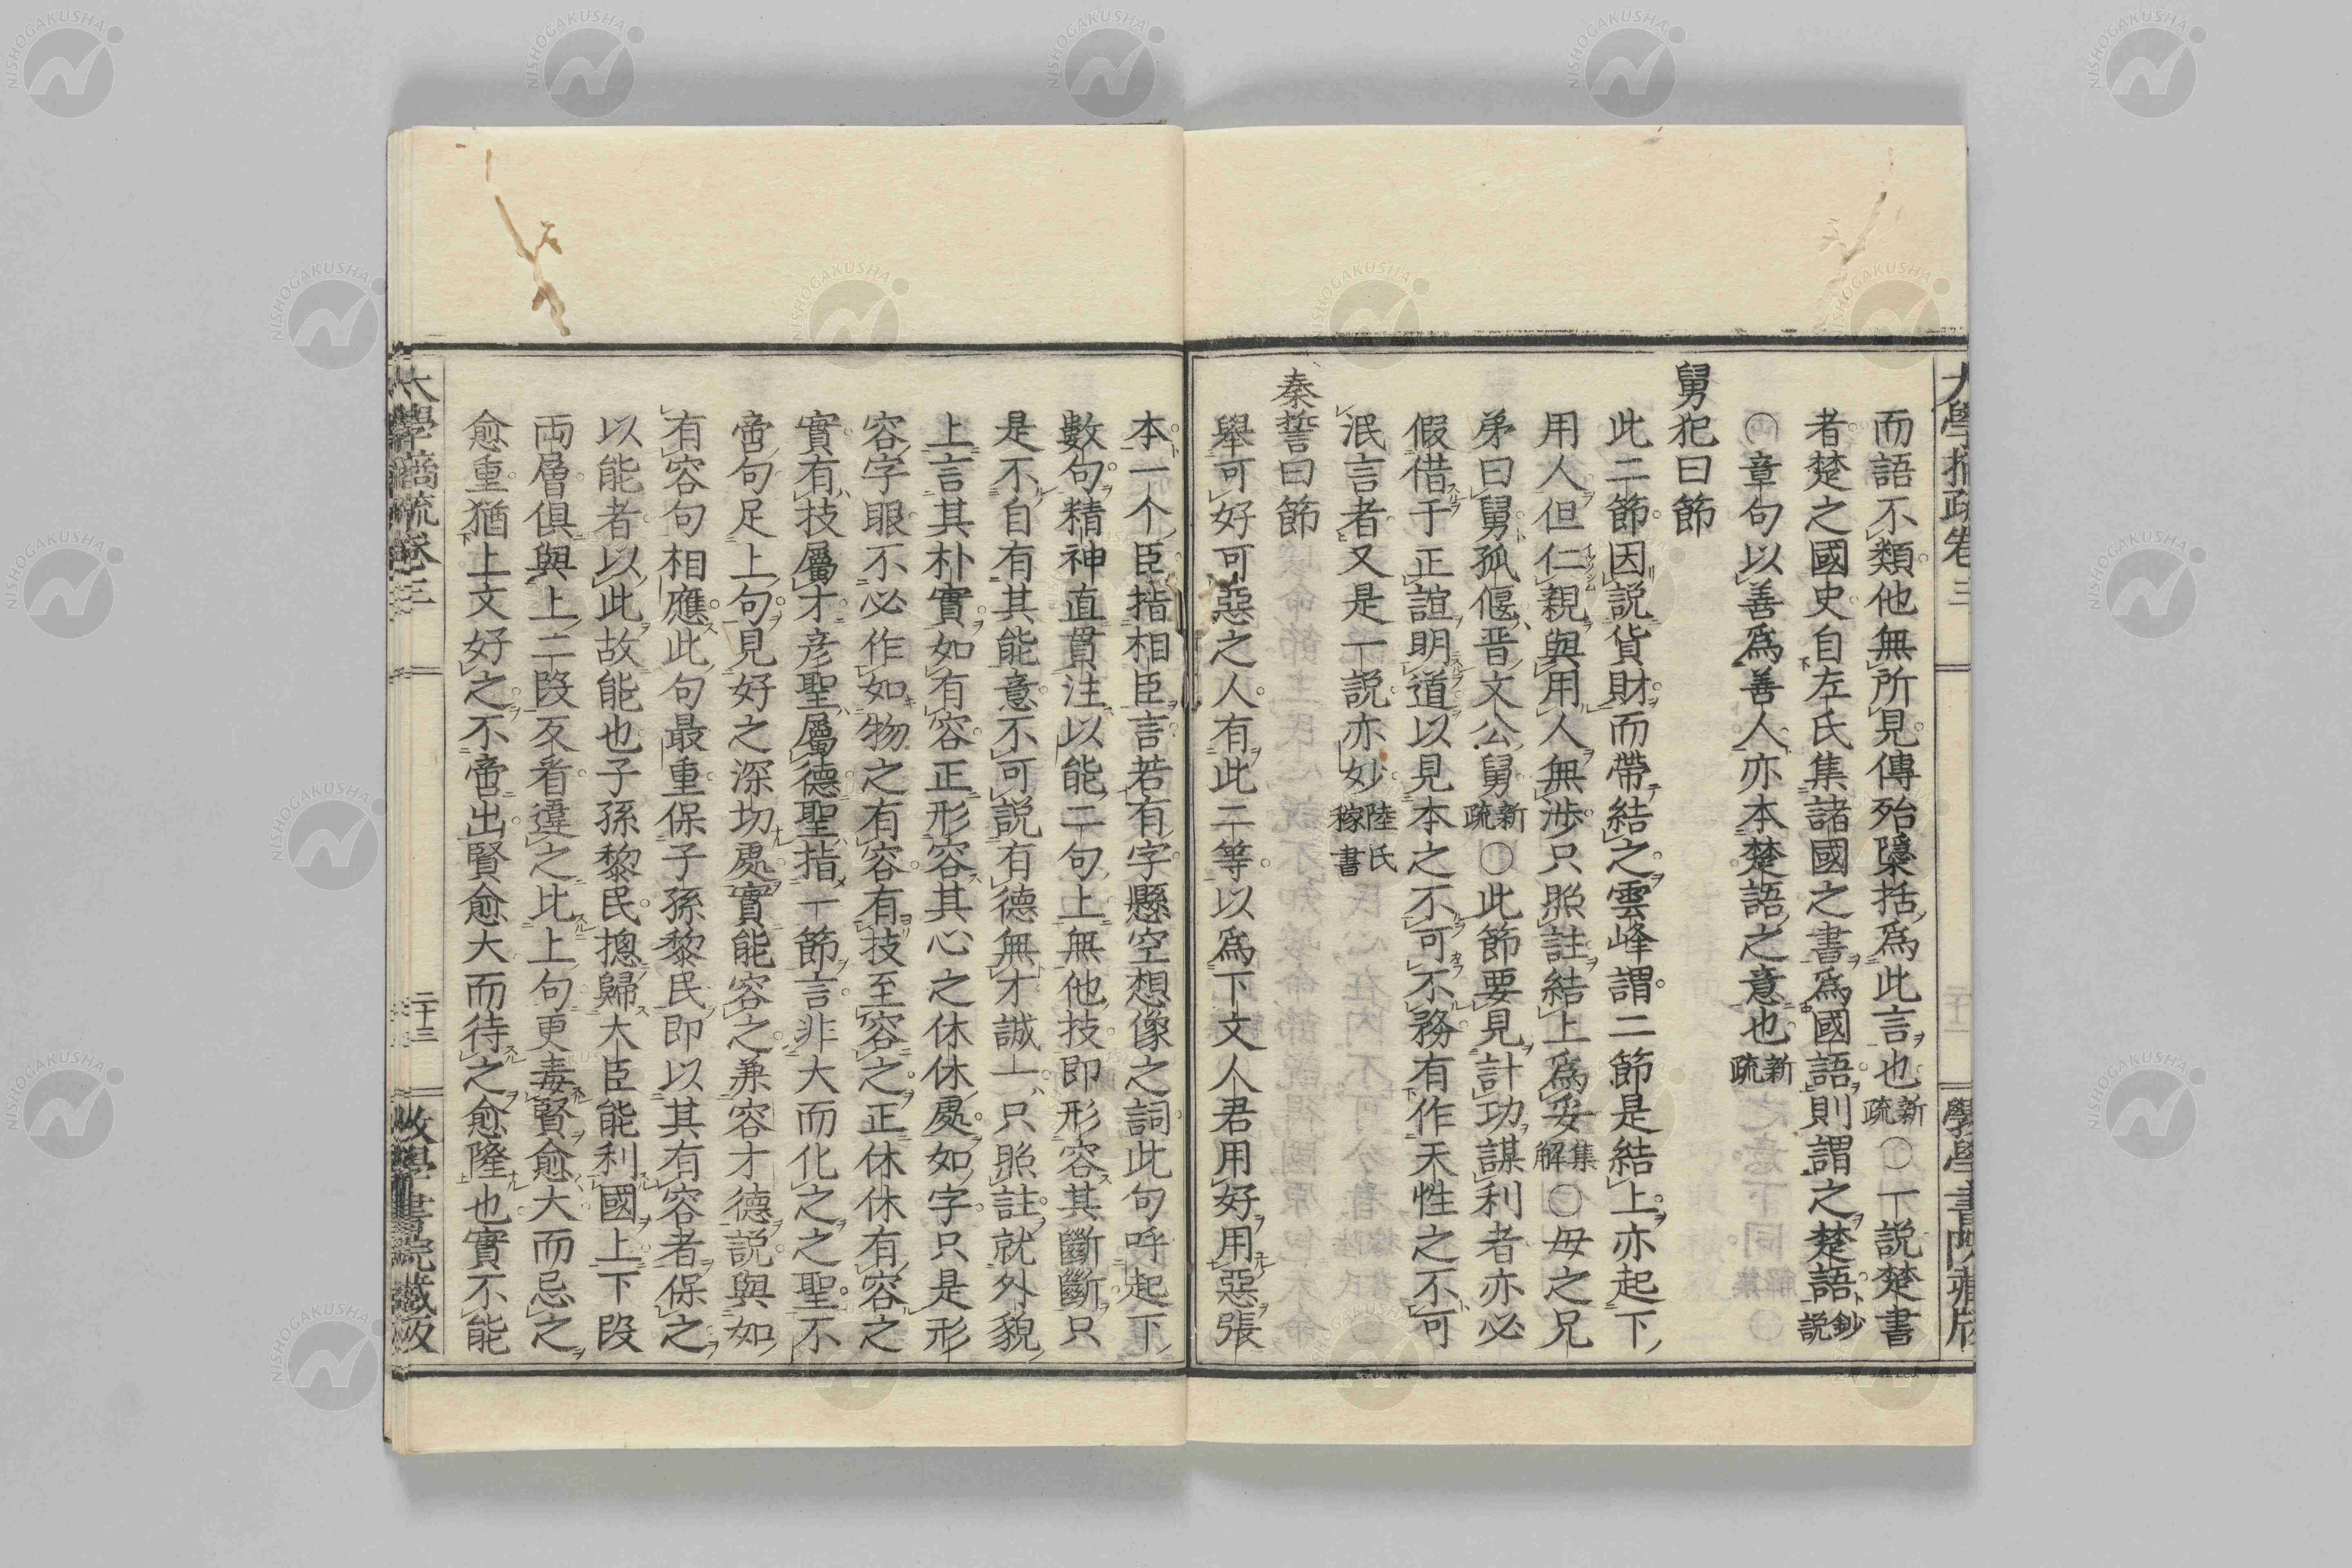 而語不類他無所見傳殆檃括爲此言也新疏〇一説楚書
者楚之國史自左氏集諸國之書爲國語則謂之楚語鈔説
〇章句以善爲善人亦本楚語之意也新疏
舅犯曰節
此二節因説貨財而帶結之雲峰謂二節是結上亦起下
用人但仁親與用人無渉只照註結上爲妥集解〇毋之兄
弟曰舅孤偃晋文公舅新疏〇此節要見計功謀利者亦必
假借于正誼明道以見本之不可不務有作天性之不可
泯言者又是一説亦妙陸氏稼書
秦誓曰節
舉可好可惡之人有此二等以爲下文人君用好用惡張
本一个臣指相臣言若有字懸空想像之詞此句呼起下
數句精神直貫注以能二句上無他技即形容其斷斷只
是不自有其能意不可説有德無才誠一只照註就外貌
上言其朴實如有容正形容其心之休休處如字只是形
容字眼不必作如物之有容有技至容之正休休有容之
實有技屬才彦聖屬德聖指一節言非大而化之之聖不
啻句足上句見好之深切處實能容之兼容才德説與如
有容句相應此句最重保子孫黎民即以其有容者保之
以能者以此故能也子孫黎民摠歸大臣能利國上下段
両層俱與上二段反看違之比上句更毒賢愈大而忌之
愈重猶上文好之不啻出賢愈大而待之愈隆也實不能
大學摘疏卷三
二十三
學書院藏版